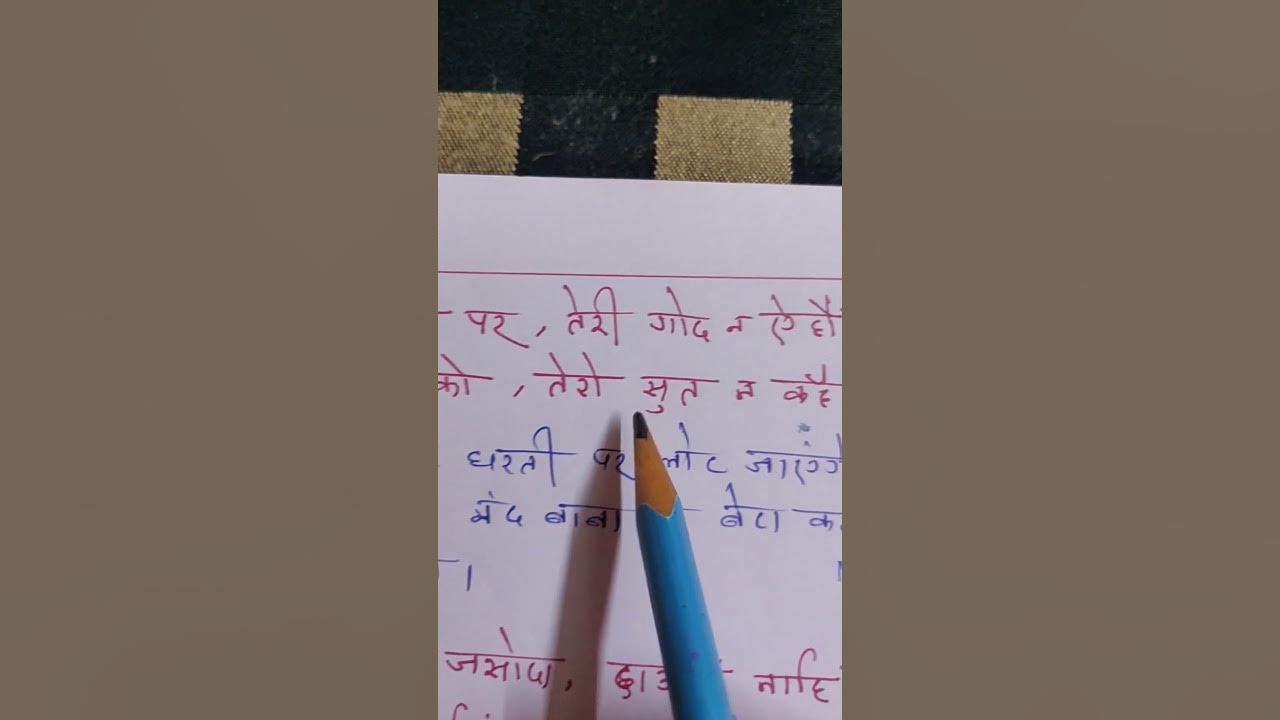 पर, तेरी गोद न ऐहौ
को, तेरो सुत न कहै
धरती पर लोट जाएंगे
नंद बाबा बेटा क
।
जसोदा, नाहि